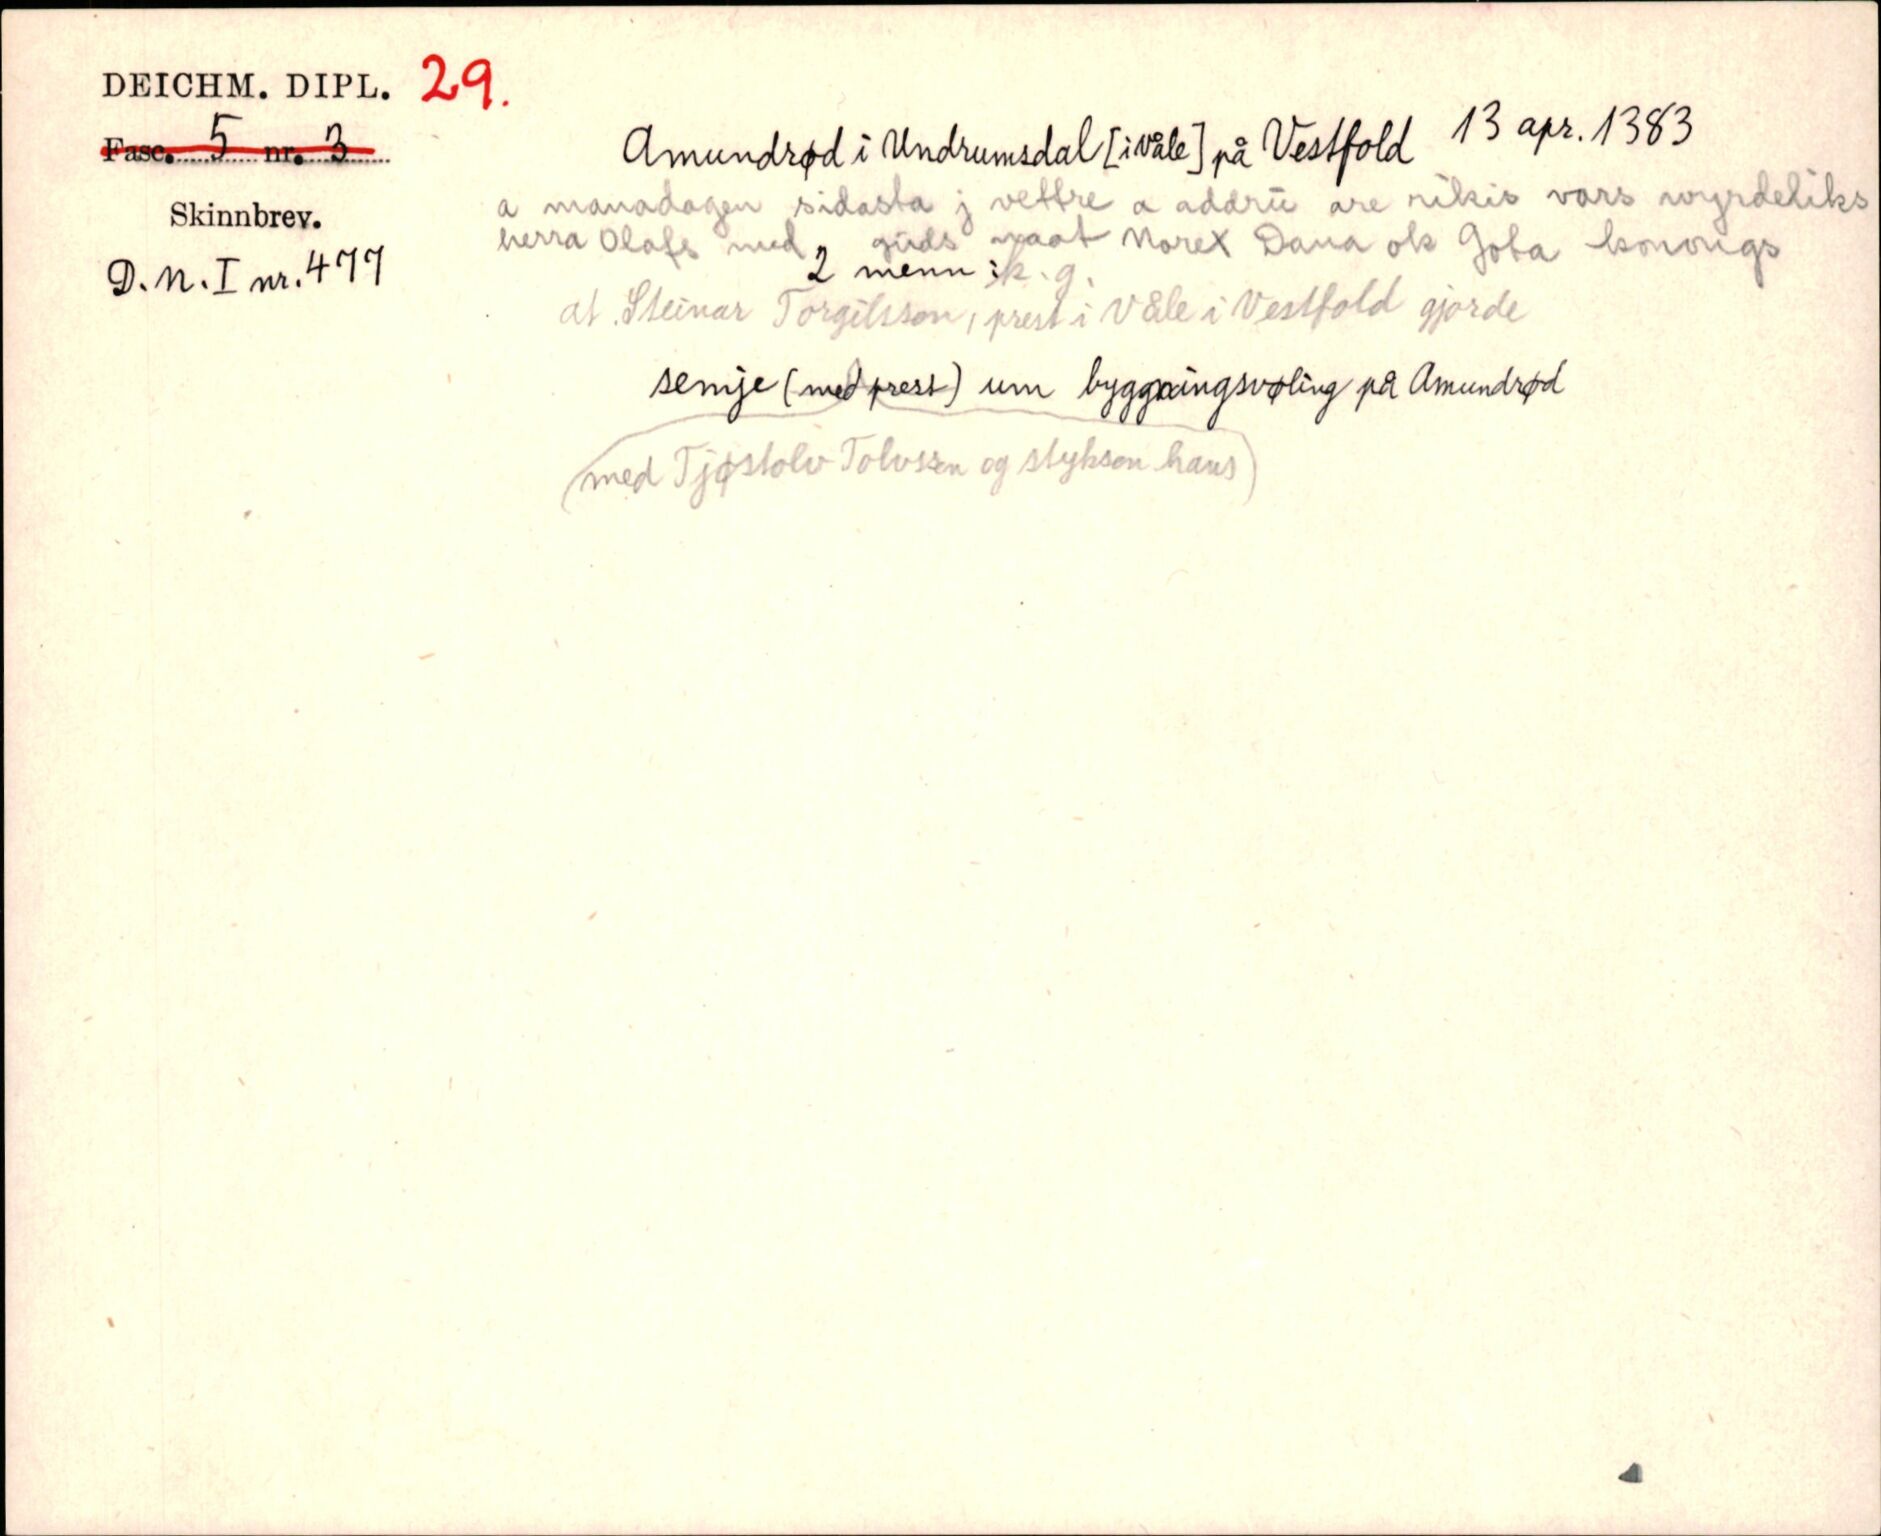 DEICHM. DIPL. 29.
Fasc. 5 nr. 3
Skinnbrev.
D. N. I nr. 477
Amundrød i Undrumsdal [i Våle] på Vestfold 13 apr. 1383
a manadagen sidasta j vettre a addru are rikis vars wyrdeliks
herra Olafs med guds naat Norex Dana ok Gota konongs
2 menn : k. g.
at Steinar Torgilsson, prest i Våle i Vestfold gjorde
semje (med prest) um byggningsvøling på Amundrød
(med Tjøstolv Tolvssen og stykson hans)